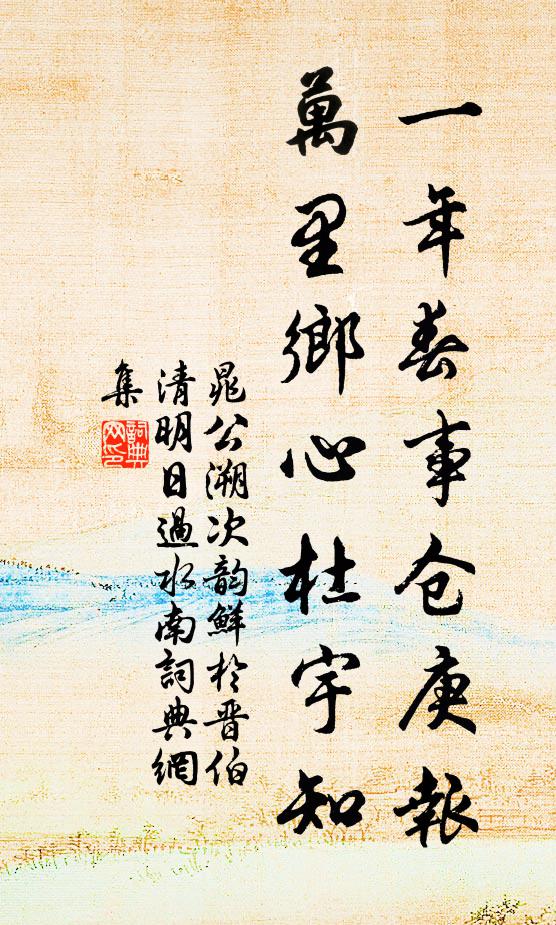 一年春事仓庚報
萬里鄉心杜宇知
晁公溯次韵鮮於晋伯
清明日過水南詞典網
集
詞典網印